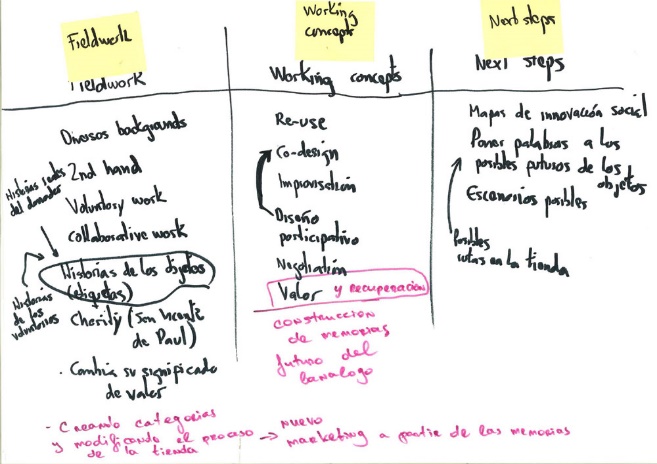 Fieldwork
Fieldwork
Diversos backgrounds
2nd hand
Voluntary work
collaborative work
Historias
del donador
Historias de los objetos
(etiquetas)
Historias
de los
voluntarios
Charity (San Vicente
de Paul)
· Cambia su significado
de valor
Working
concepts
Working concepts
Re-use
Co-design
Improvisación
Diseño
participativo
Negotiation
Valor y recuperación
construccion
de memorias
futuro del
Next steps
Next steps
Mapas de innovación social
Poner palabras a los
posibles futuros de los
objetos
Escenarios posibles
Posibles
rutas en la tienda
- Creando categorias
y modificando el proceso
de la tienda
→ nuevo
marketing a partir de las memorias